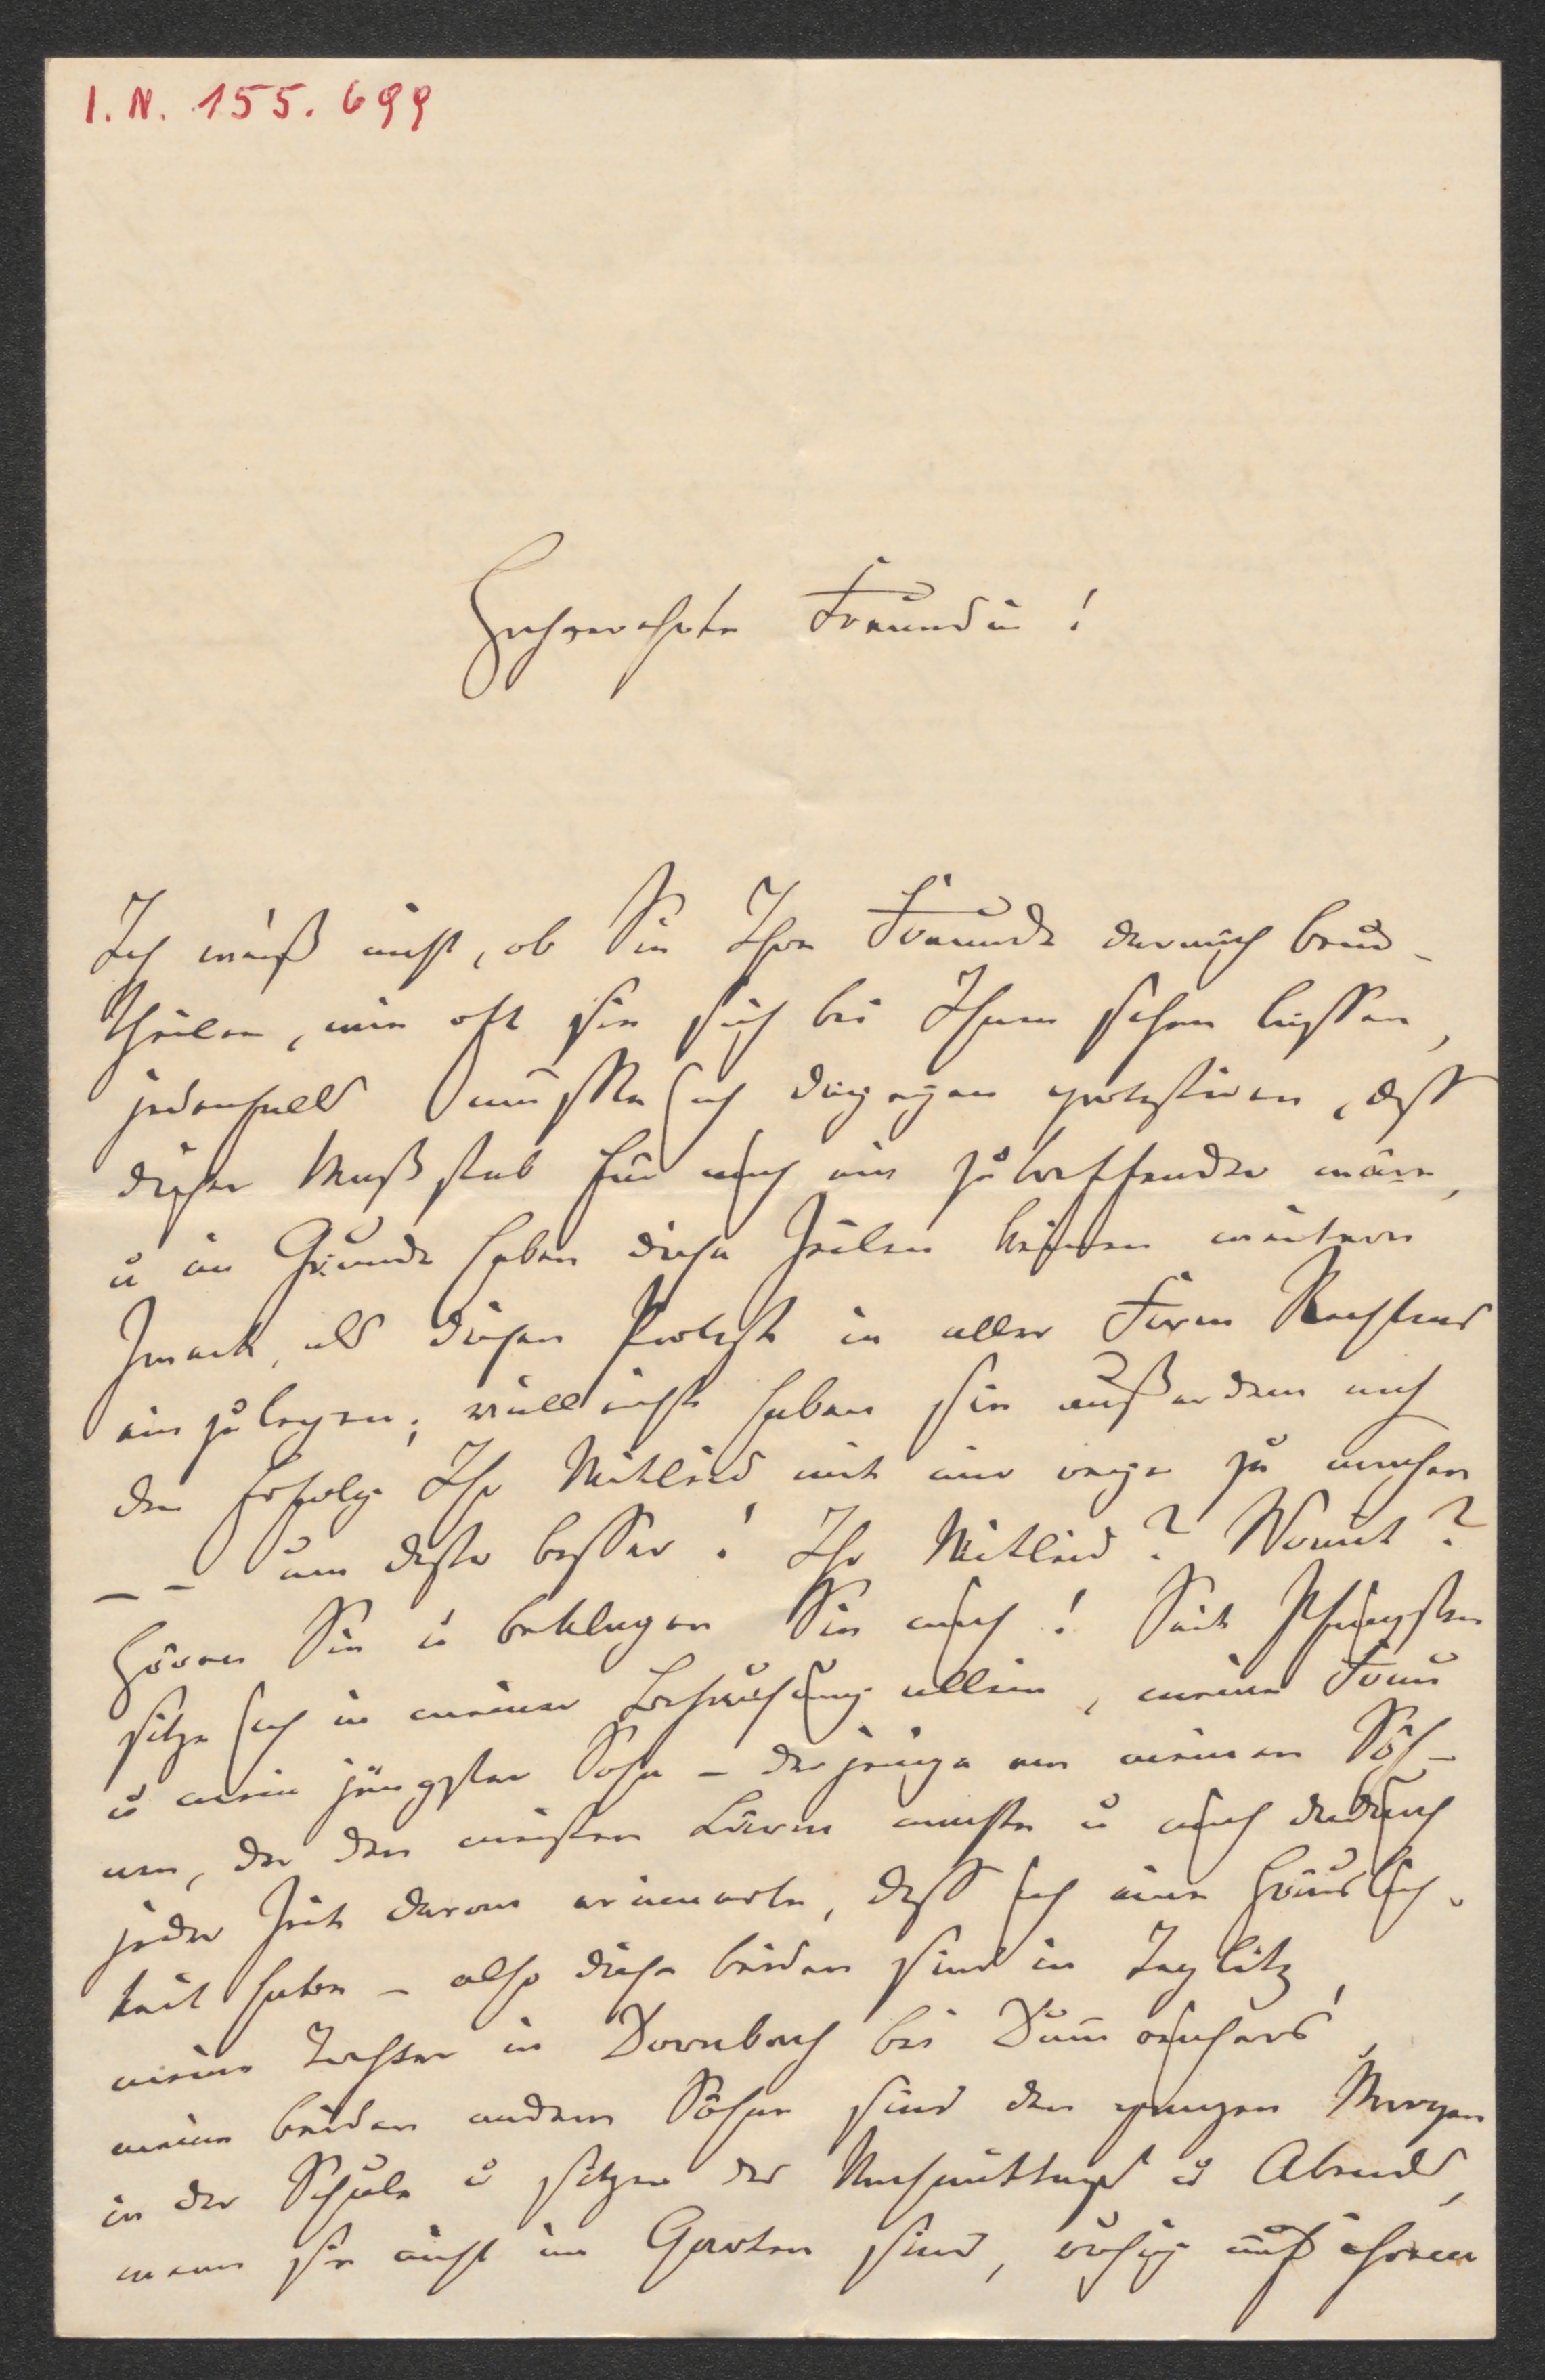 I.N. 155.699
Hochverehrte Freundin!
Ich weiß nicht, ob Sie Ihre Freunde darnach beur-
theilen, wie oft sie sich bei Ihnen sehen lassen,
jedenfalls müsste ich dagegen protestiren, dass
dieser Maßstab für mich ein zutreffender wäre,
u im Grunde haben diese Zeilen keinen weitern
Zweck, als diesen Protest in aller Form Rechtens
einzulegen; vielleicht haben sie außerdem noch
den Erfolg Ihr Mitleid mit mir rege zu machen
– – um desto besser! Ihr Mitleid? Womit?
Hören Sie u beklagen Sie mich! Seit Pfingsten
sitze ich in meiner Behausung allein, meine Frau
u mein jüngster Sohn – derjenige von meinen Söh-
nen, der den meisten Lärm machte u mich dadurch
jeder Zeit daran erinnerte, dass ich eine Häuslich-
keit habe – also diese beiden sind in Teplitz,
meine Tochter in Dornbach bei Dumreichers,
meine beiden andern Söhne sind den ganzen Morgen
in der Schule u sitzen des Nachmittags u Abends,
wenn sie nicht im Garten sind, ruhig auf ihrem